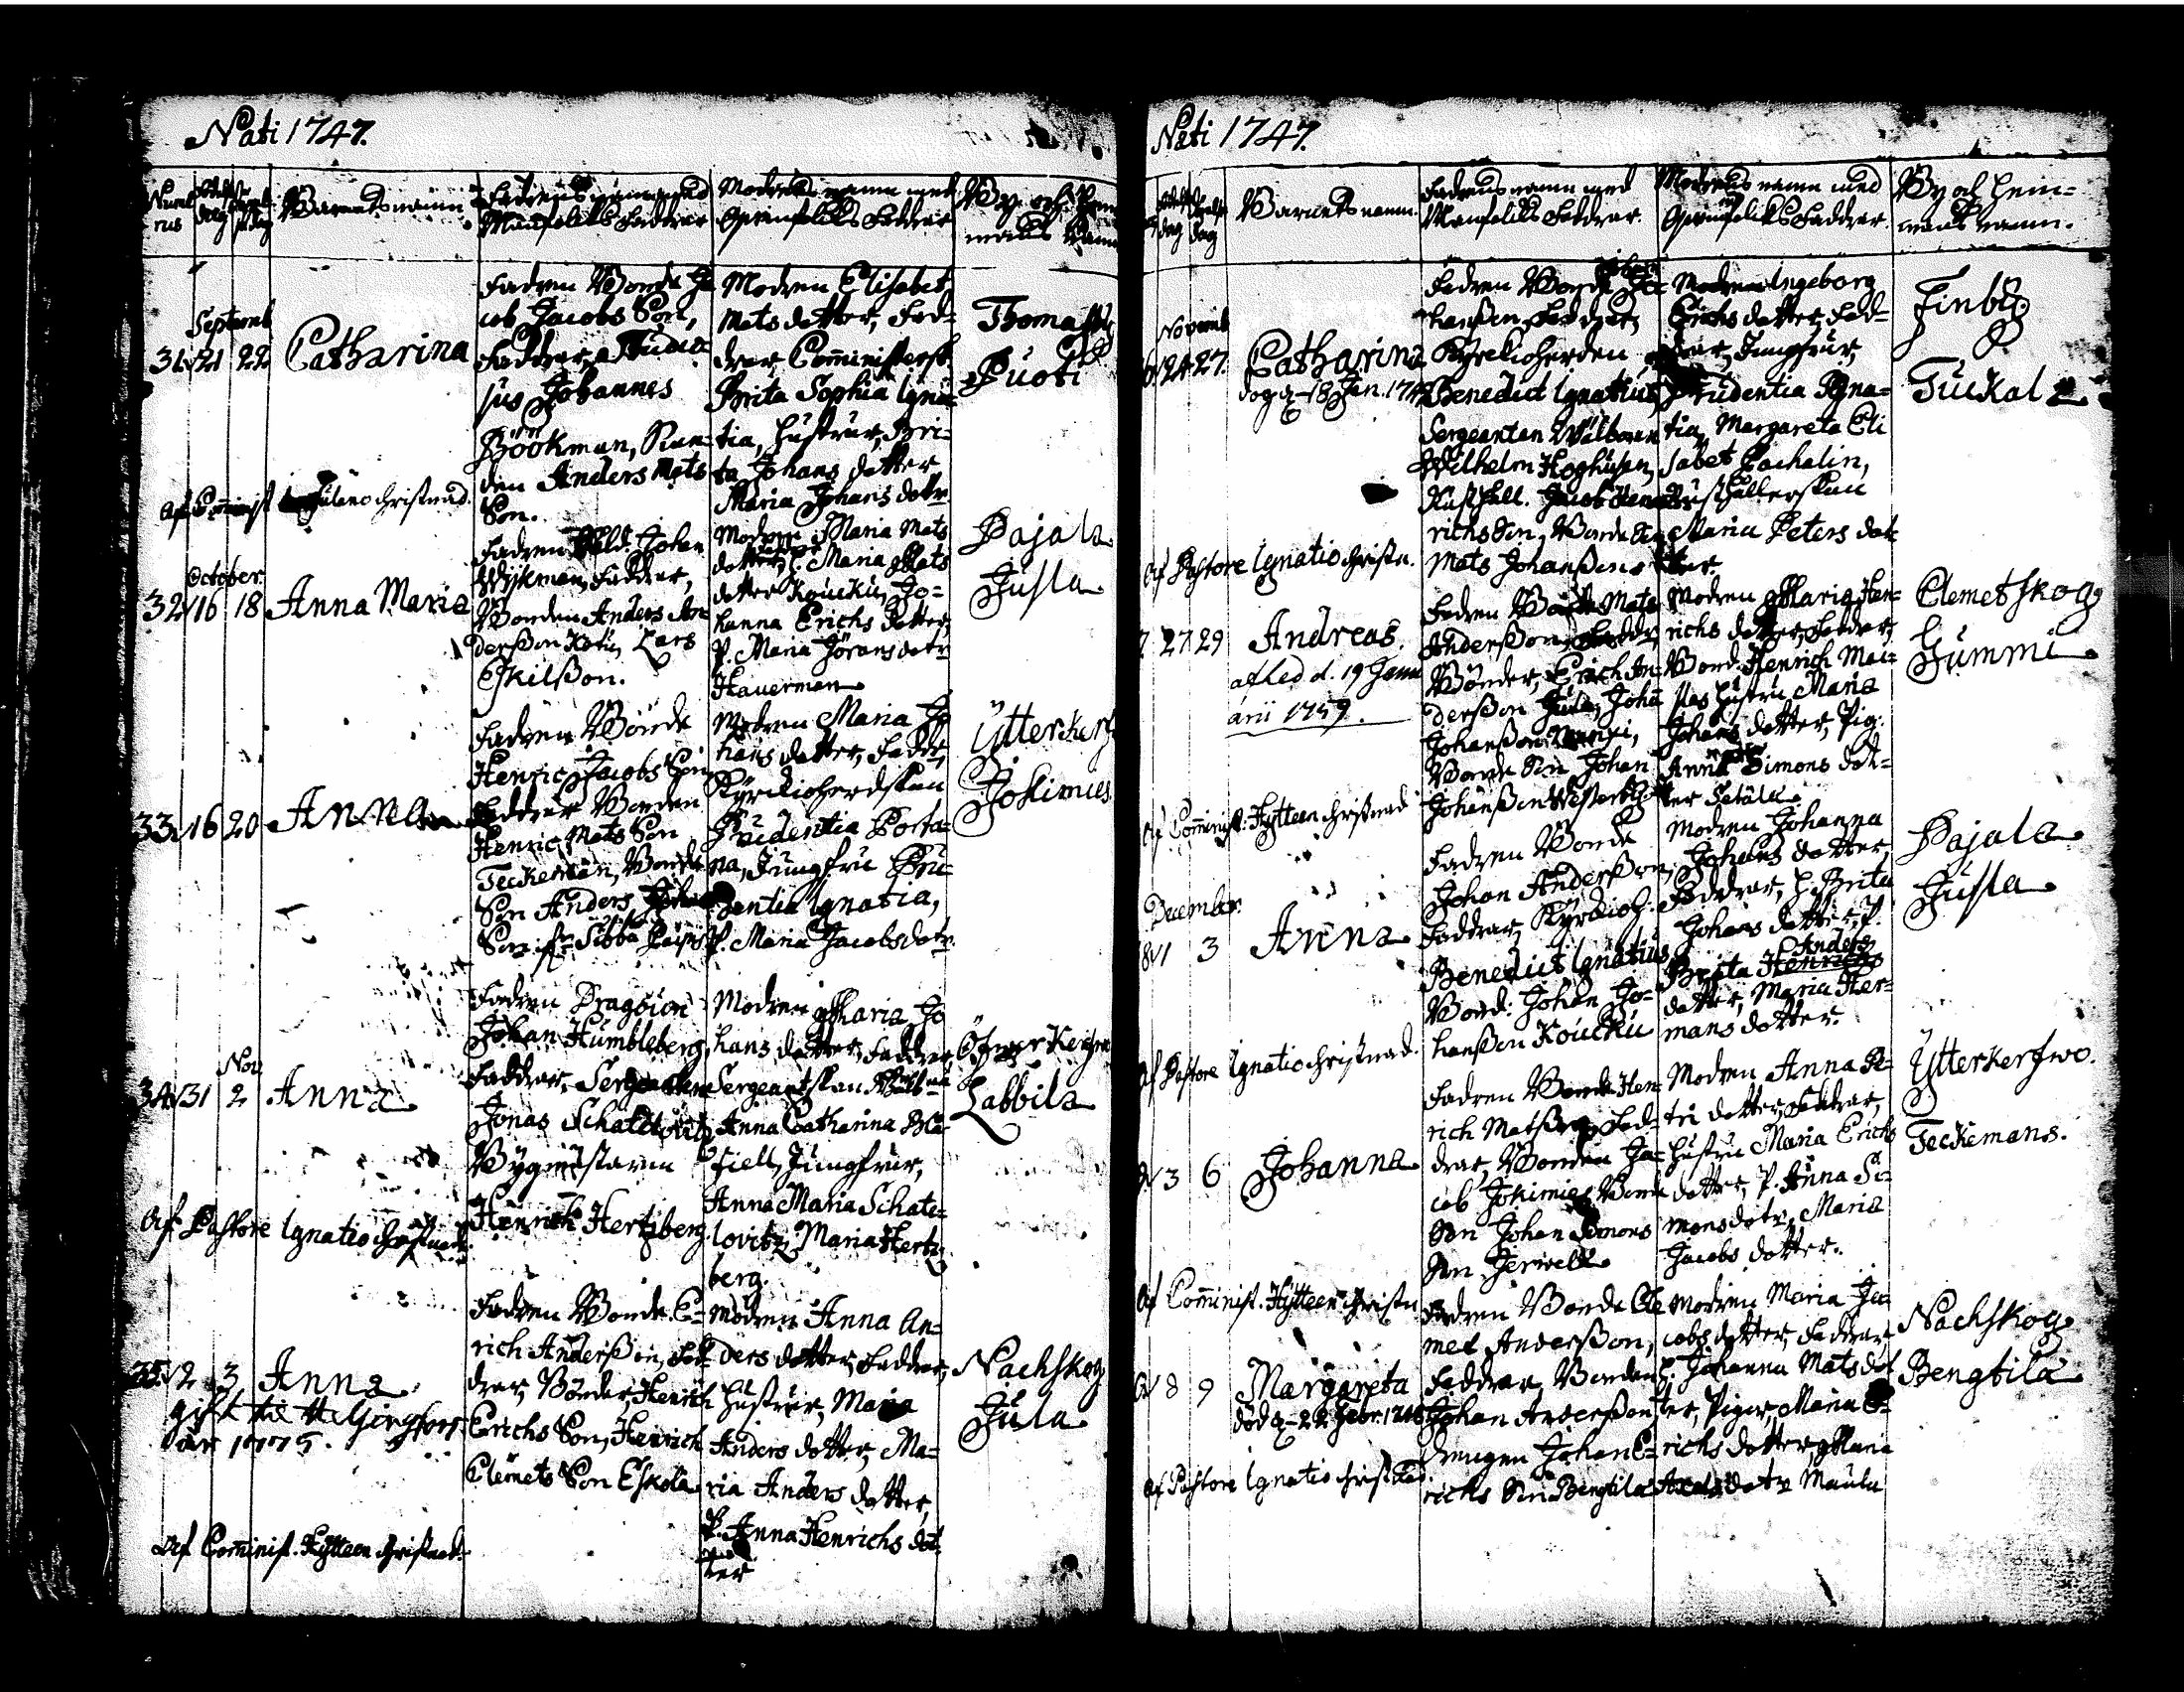 Nati 1747.
Numerus
Födelse dag
Christel. dag
Barnets namn.
Fadrens namn med
Manfolks Faddrar
Modrens namn med
Qvinfolks Faddrar
By och Hem-
mans Namn
Septemb
31 21 22
Catharina
Fadren Bonde Ja
cob Jacobs Son,
Faddrar, Studio-
sus Johannes
Böökman, Run-
den Anders Mats
Son.
Modren Elisabet
Mats dotter, Fad-
drar, Commministersk.
Brita Sophia Igna-
tia, hustrur, Bri-
ta Johans dotter,
Maria Johans dotr
Thomas
Puoti
Af Comminist christnad.
October
32 16 18
Anna Maria
Fadren Sold. Johan
Wijkman, Faddrar,
Bonden Anders An
derßon Kotu, Lars
Eskilßon.
Modren Maria Mats
dotter, Maria Mats
dotter Koucku, Jo-
hanna Erichs dotter,
P. Maria Jörans dotr
Hauerman
Pajala
Jusla
33 16 20
Anna
Fadren Bonde
Henric Jacobs Son
Faddrar Bonden
Henric Mats Son
Teckeman, Bonde
Son Anders
Son
Modren Maria Jo
hans dotter, Faddr,
Kyrckioherdskan
Prudentia Porta-
na, Jungfru Pru-
dentia Ignatia,
P. Maria Jacobs dotr.
Ytterkerf
Jokimies
Nov.
34 31 2
Anna
Fadren Dragoun
Johan Humbleberg,
Faddrar, Sergeanten
Jonas Schatelovitz
Bygmästaren
Henrich Hertzberg.
Modren Maria Jo
hans dotter, Faddrar
Sergeantskan Wälb:na
Anna Catharina Blå
fiell, Jungfrur,
Anna Maria Schate-
lovitz, Maria Hertz
berg.
Öfwer Kerfwe
Labbila
Af Pastore Ignatio christnad.
35 2 3
Anna
gift til Helsingfors
år 1775.
Fadren Bonde E-
rich Anderßon, Fad-
drar, Bönder, Henrich
Erichs Son, Henrich
Clemets Son Eskola
Modren Anna An-
ders dotter, Faddrar,
hustrur, Maria
Anders dotter, Ma-
ria Anders dotter,
P. Anna Henrichs dot
ter
Nachskog
Jula
Af Comminist. Hytteen christnad.
Nati 1747.
dag
dag
Barnets namn.
Fadrens namn med
Manfolks Faddrar.
Modrens namn med
Qvinfolks Faddrar.
By och Hem-
mans namn.
Novemb
24 27.
Catharina
dog d. 18 Jan. 174
Fadren Bonde Jo-
hanßen, Faddrar,
Kyrckioherden
Benedict Ignatius,
Sergeanten Wälboren
Wilhelm Hoghusen,
Rusthåll. Jacob Hen
richs Son, Bonde Son
Mats Johanßon
Modren Ingeborg
Erichs dotter, Fad-
drar, Jungfrur,
Prudentia Igna-
tia, Margareta Eli
sabet Pachalin,
Rusthållerskan
Maria Peters dot-
ter.
Finby
Tuckala
Af Pastore Ignatio christn.
27 29
Andreas.
afled d. 19 Janu
arii 1759.
Fadren Bonde Mats
Anderßon, Faddr,
Bönder, Erich An-
derßon Jula, Johan
Johanßon,
Bonde Son Johan
Johanßon Westerby
Modren Maria Hen-
richs dotter, Faddrar,
Bond. Henrich Mai-
las hustru Maria
Johans dotter, Pig.
Anna Simons dot-
ter Setälä
Clemetskog
Jummi
Af Comminist: Hytteen christnad
December.
1 3
Anna
Fadren Bonde
Johan Anderßon,
Faddrar, Kyrckioh.
Benedict Ignatius,
Bond. Johan Jo-
hanßon Koucku
Modren Johanna
Johans dotter
Faddrar, h. Brita
Johans dotter, P.
Anders
Brita Henrichs
dotter, Maria Her-
mans dotter.
Pajala
Jusla
Af Pastore Ignatio christnad.
3 6
Johanna
Fadren Bonde Hen-
rich Matßon, Fad-
drar, Bonden Ja-
cob Jokimies, Bonde
Son Johan Simons
Son Jerwelä
Modren Anna Pe-
tri dotter, Faddrar,
hustru Maria Erichs
dotter, P. Anna Si-
mons dotr, Maria
Jacobs dotter.
Ytterkerfwo.
Teckemans.
Af Comminist. Hytteen christn
8 9
Margareta
död d. 22 Febr. 1748
Fadren Bonde Cle
met Anderßon,
Faddrar, Bonden
Johan Anderßon
Drengen Johan E-
richs Son Bengtila
Modren Maria Ja-
cobs dotter, Faddrar
h. Johanna Mats dot
ter, Pigor, Maria E-
richs dotter, Maria
Axels dotr Maula
Nachskog
Bengtila
Af Pastore Ignatio christnad.